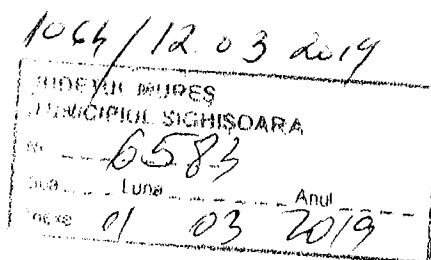 12.03 2019
JUDEȚUL MUREȘ
MUNICIPIUL SIGHIȘOARA
Nr.
Ziua Luna Anul
01 03 2019